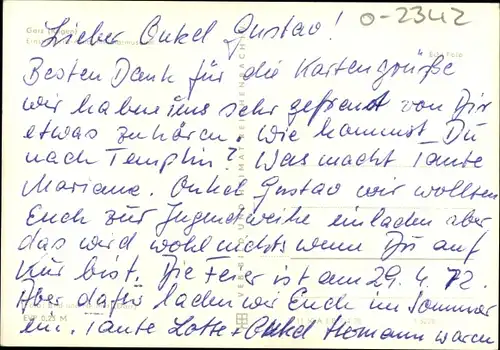 o-2342
Lieber Onkel Gustav!
Garz (Rügen)
Besten Dank für die Kartengrüße
wir haben uns sehr gefreut von Dir
etwas zu hören. Wie kommst Du
nach Templin? Was macht Tante
Mariane. Onkel Gustav wir wollten
Euch zur Jugendweihe einladen aber
das wird wohl nichts wenn Du auf
Kur bist. Die Feier ist am 29.4.72.
Aber dafür laden wir Euch im Sommer
ein. Tante Lotte + Onkel Hemann waren
EVP 0,25 M